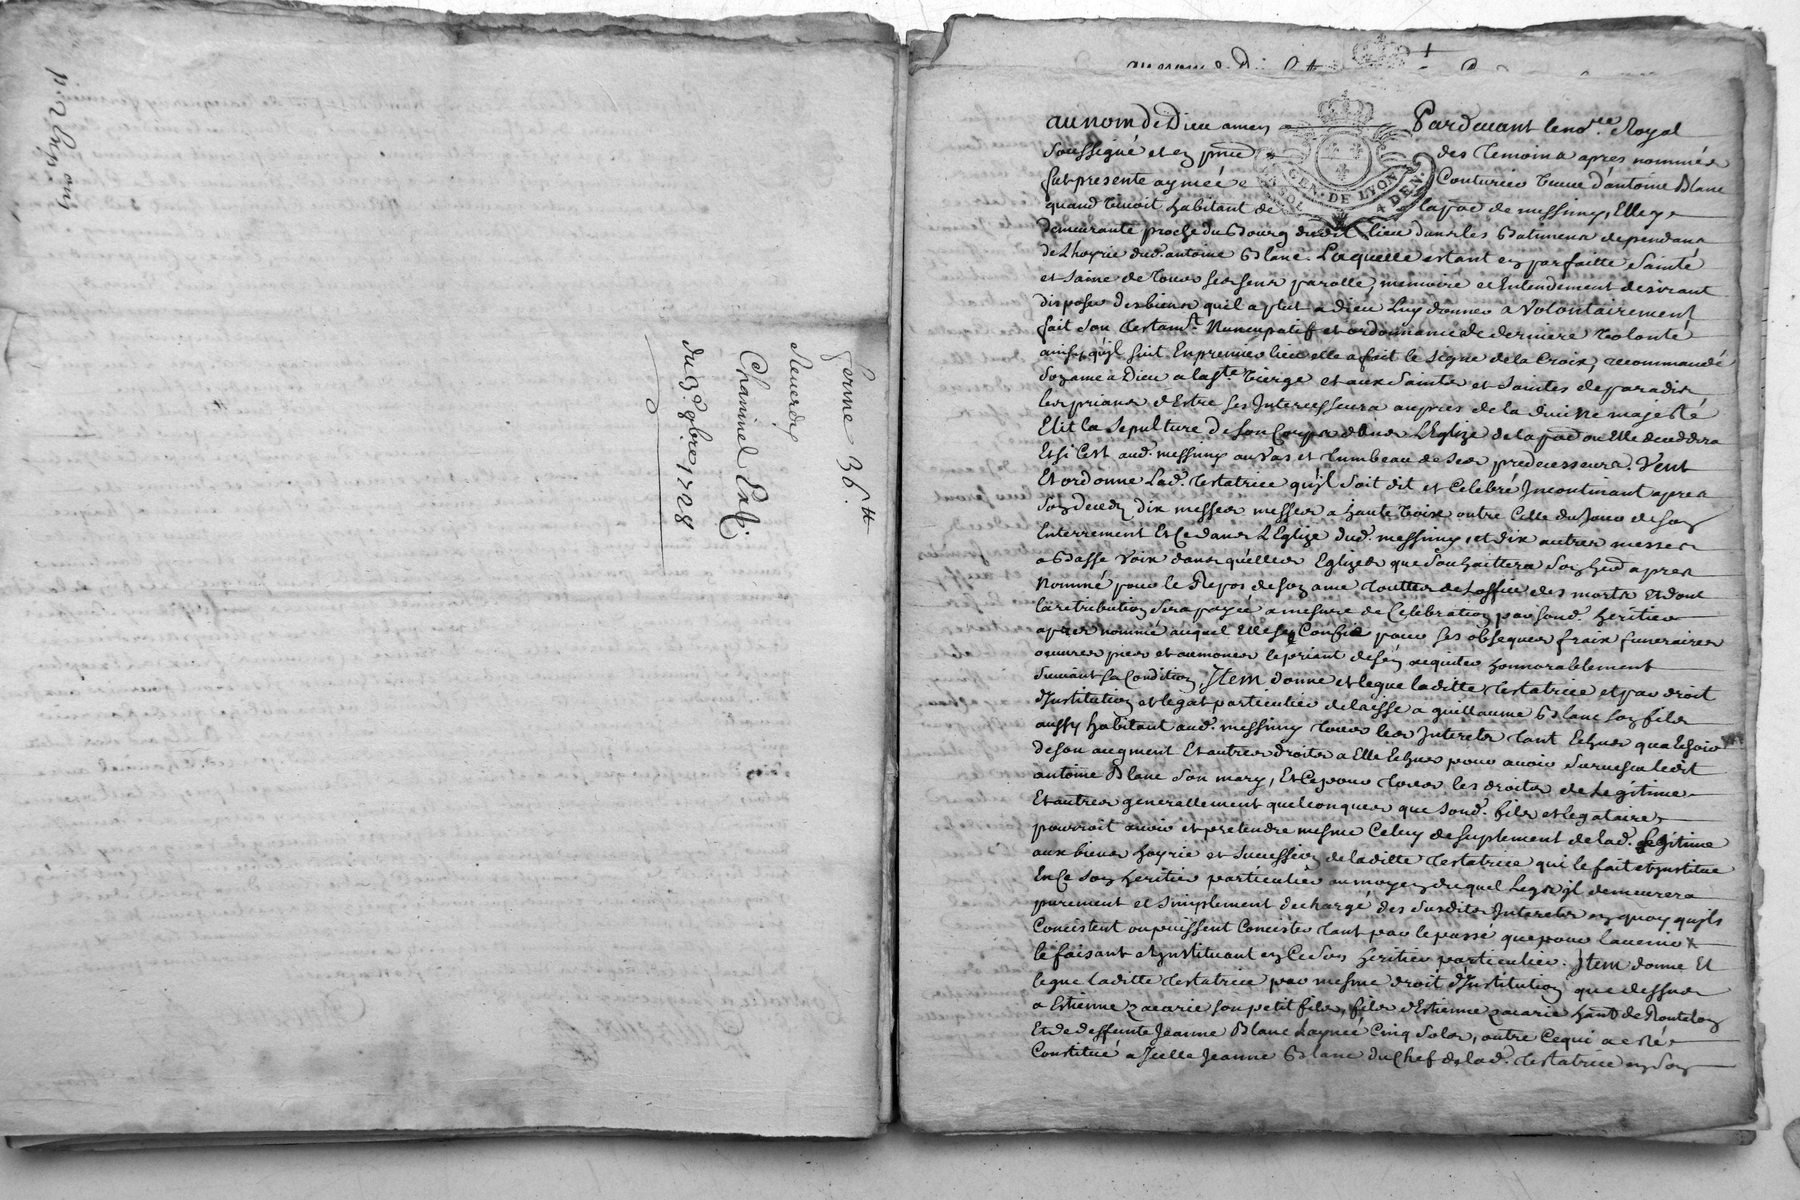 p. 2 chep ony
ferme 36.tt
Chaninel
du 3e 9bre 1728
au nom de Dieu amen Pardevant le no.re Royal
soussigné et en pnce des temoins apres nommés
fut presente aymée Couturier veuve d'antoine Blanc
quand vivoit habitant de la psse de messimy, Elle y
demeurante proche du Bourg dudit lieu dans les Batimens dependans
de L'hoyrie dud. antoine Blanc. Laquelle estant en parfaitte Santé
et saine de tous ses sens parolle, memoire et Entendement desirant
disposer des biens quil a plut a dieu Luy donner a Volontairement
fait son testamt. Nuncupatif et ordonnance de derniere volonté
ainsy qu'jl suit. En premier lieu elle a fait le signe de la Croix, recommandé
son ame a Dieu a la ste. vierge et aux saints et saintes de paradis
les priant d'Estre ses Intercesseurs aupres de la divine majesté
Elit la sepulture de son Corps dans L'Eglize de la psse ou Elle decedera
Et si c'est aud. messimy au vas et tumbeau de ses predecesseurs. Veut
Et ordonne Lad. testatrice qu'jl soit dit et Celebré Incontinant apres
son deceds dix messes messes a haute voix outre Celle du Jour de son
Enterrement Et Ce dans L'Eglize dud. messimy, et dix autres messes
a Basse voix dans qu'elles Eglizes que souhaittera son hered apres
Nommé pour le Repos de son ame touttes de L'office des morts Et dont
la retribution sera payée a mesure de Celebration par sond. heritier
apres nommé auquel Elle se Confie pour ses obseques fraix funeraires
oeuvres pies et aumones le priant de s'en acquiter honnorablement
suivant sa Condition Item donne et legue laditte testatrice et par droit
d'Institution et legat particulier delaisse a guillaume Blanc son fils
aussy habitant aud. messimy tous les Interets tant Echus qua Echoir
de son augment Et autres droits a Elle Echus pour avoir survescu ledit
antoine Blanc son mary, Et Ce pour tous les droits de Legitime
Et autres generallement quelconques que sond. fils et legataire
pourroit avoir et pretendre mesme Celuy de suplement de lad. legitime
aux biens hoyrie et succession de laditte testatrice qui le fait et jnstitue
En Ce son heritier particulier au moyen duquel Legs jl demeurera
purement et simplement dechargé des susdits Interets en quoy qu'jls
Concistent ou puissent Concister tant par le passé que pour l'avenir
le faisant et jnstituant en Ce son heritier particulier. Item donne Et
legue Laditte testatrice par mesme droit d'Institution que dessus
a Estienne zacarie son petit fils, fils d'Estienne zacarie hant de
Et de deffunte Jeanne Blanc L'aynée Cinq sols, outre Ce qui a esté
Constitué a Jcelle Jeanne Blanc du Chef de lad. testatrice en son
GEN. DE LYON